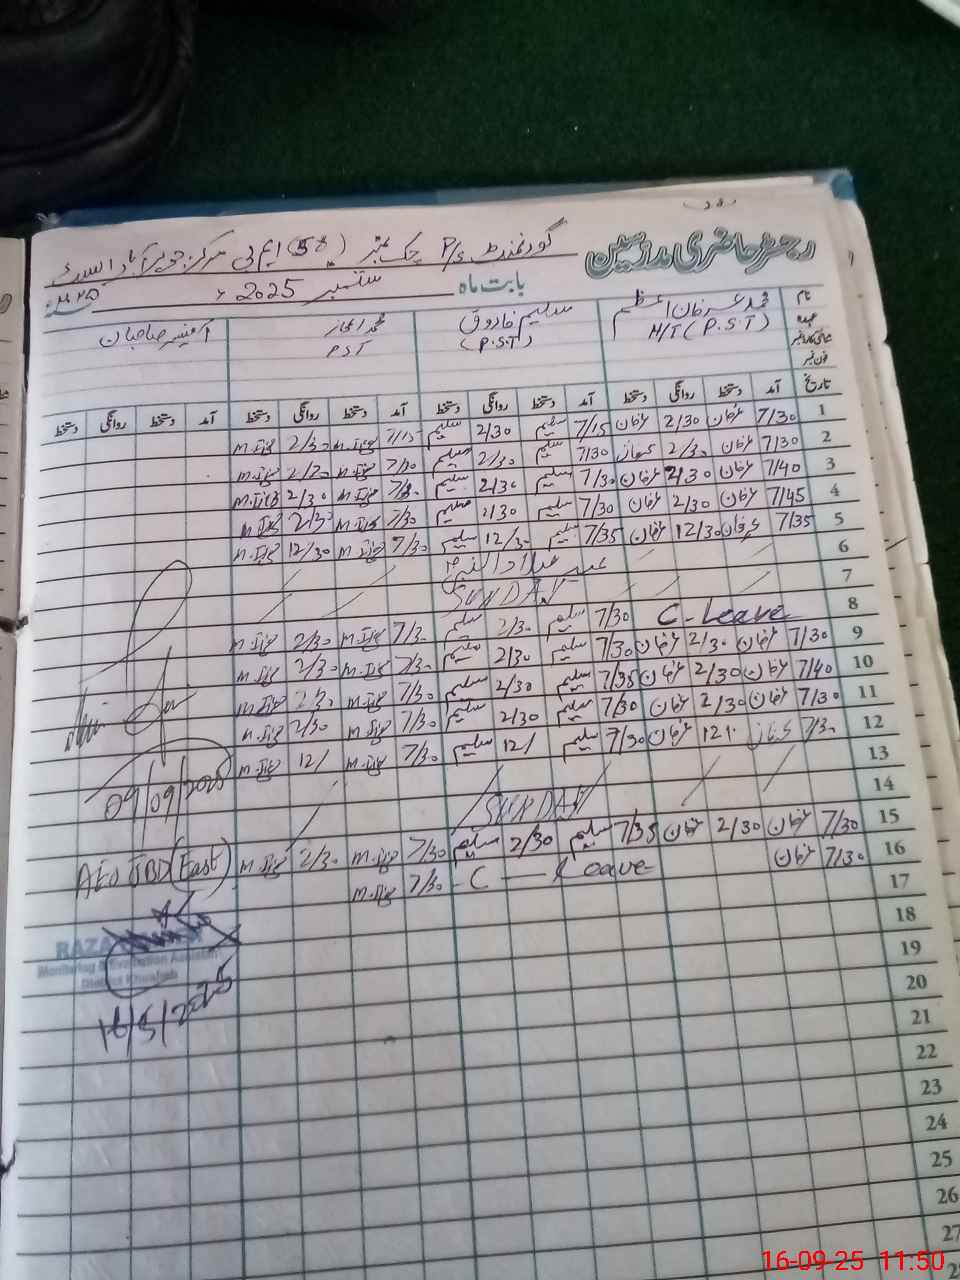 رجسٹر حاضری ملازمین
گورنمنٹ P/S چک نمبر 58 ایم بی مرکز جوہرآباد ایسٹ
بابت ماہ ستمبر 2025ء
نام
عہدہ
فون نمبر
محمد عرفان اعظم
H/T (P.S.T)
سلیم فاروق
(P.S.T)
محمد اعجاز
PST
آفیسر صاحبان
تاریخ آمد دستخط روانگی دستخط آمد دستخط روانگی دستخط آمد دستخط روانگی دستخط آمد دستخط روانگی دستخط
1 7/30 عرفان 2/30 عرفان 7/15 سلیم 2/30 سلیم 7/15 2/30
2 7/30 عرفان 2/30 7/30 سلیم 2/30 سلیم 7/30 2/30
3 7/40 عرفان 2/30 عرفان 7/30 سلیم 2/30 سلیم 7/30 2/30
4 7/45 عرفان 2/30 عرفان 7/30 سلیم 2/30 سلیم 7/30 2/30
5 7/35 عرفان 12/30 عرفان 7/35 سلیم 12/30 سلیم 7/30 12/30
6 عید میلاد النبی
7 SUNDAY
8 C-Leave 7/30 سلیم 2/30 سلیم 7/30 2/30
9 7/30 عرفان 2/30 عرفان 7/30 سلیم 2/30 سلیم 7/30 2/30
10 7/40 عرفان 2/30 عرفان 7/35 سلیم 2/30 سلیم 7/30 2/30
11 7/30 عرفان 2/30 عرفان 7/30 سلیم 2/30 سلیم 7/30 2/30
12 7/30 عرفان 12/ عرفان 7/30 سلیم 12/ سلیم 7/30 12/
13
14 SUNDAY
15 7/30 عرفان 2/30 عرفان 7/35 سلیم 2/30 سلیم 7/30 2/30
16 7/30 عرفان C - Leave 7/30
17
18
19
20
21
22
23
24
25
26
27
09/09/2025
AEO JBD (East)
RAZA
Monitoring & Evaluation Assistant
District Khushab
16/9/2025
16-09-25 11:50